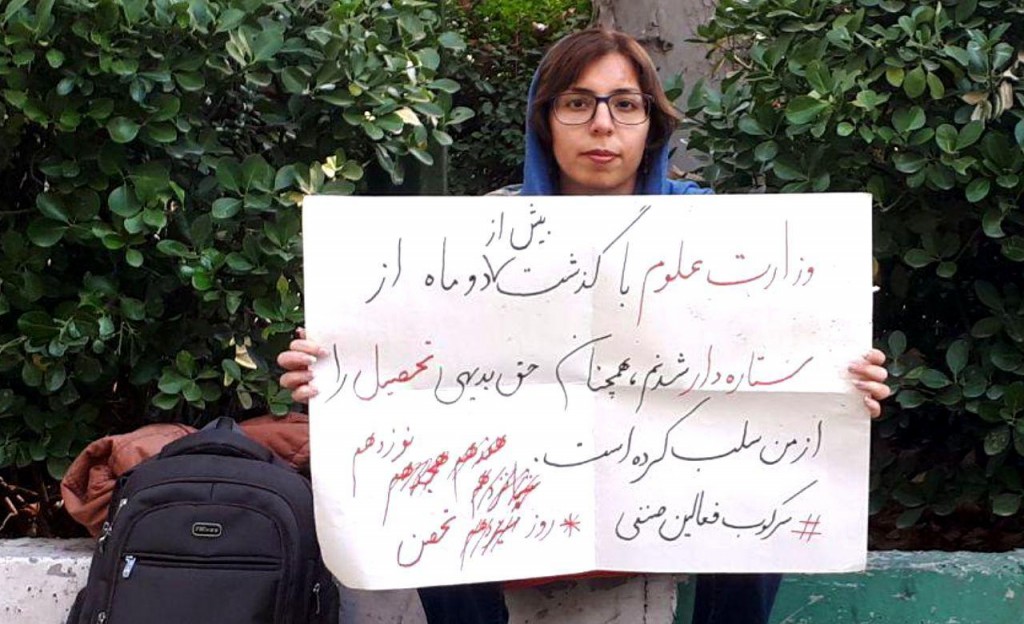 بیش از
وزارت علوم با گذشت دو ماه از
ستاره‌دار شدنم، همچنان حق بدیهی تحصیل را
از من سلب کرده است.
# سرکوب فعالین صنفی
نوزدهم
هفدهم هجدهم
* روز تحصن